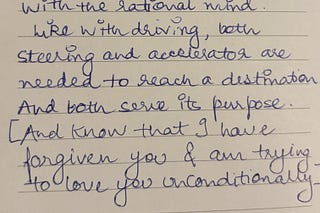 with the rational mind.
Like with driving, both
steering and accelerator are
needed to reach a destination
And both serve its purpose.
[And know that I have
forgiven you & am trying
to love you unconditionally